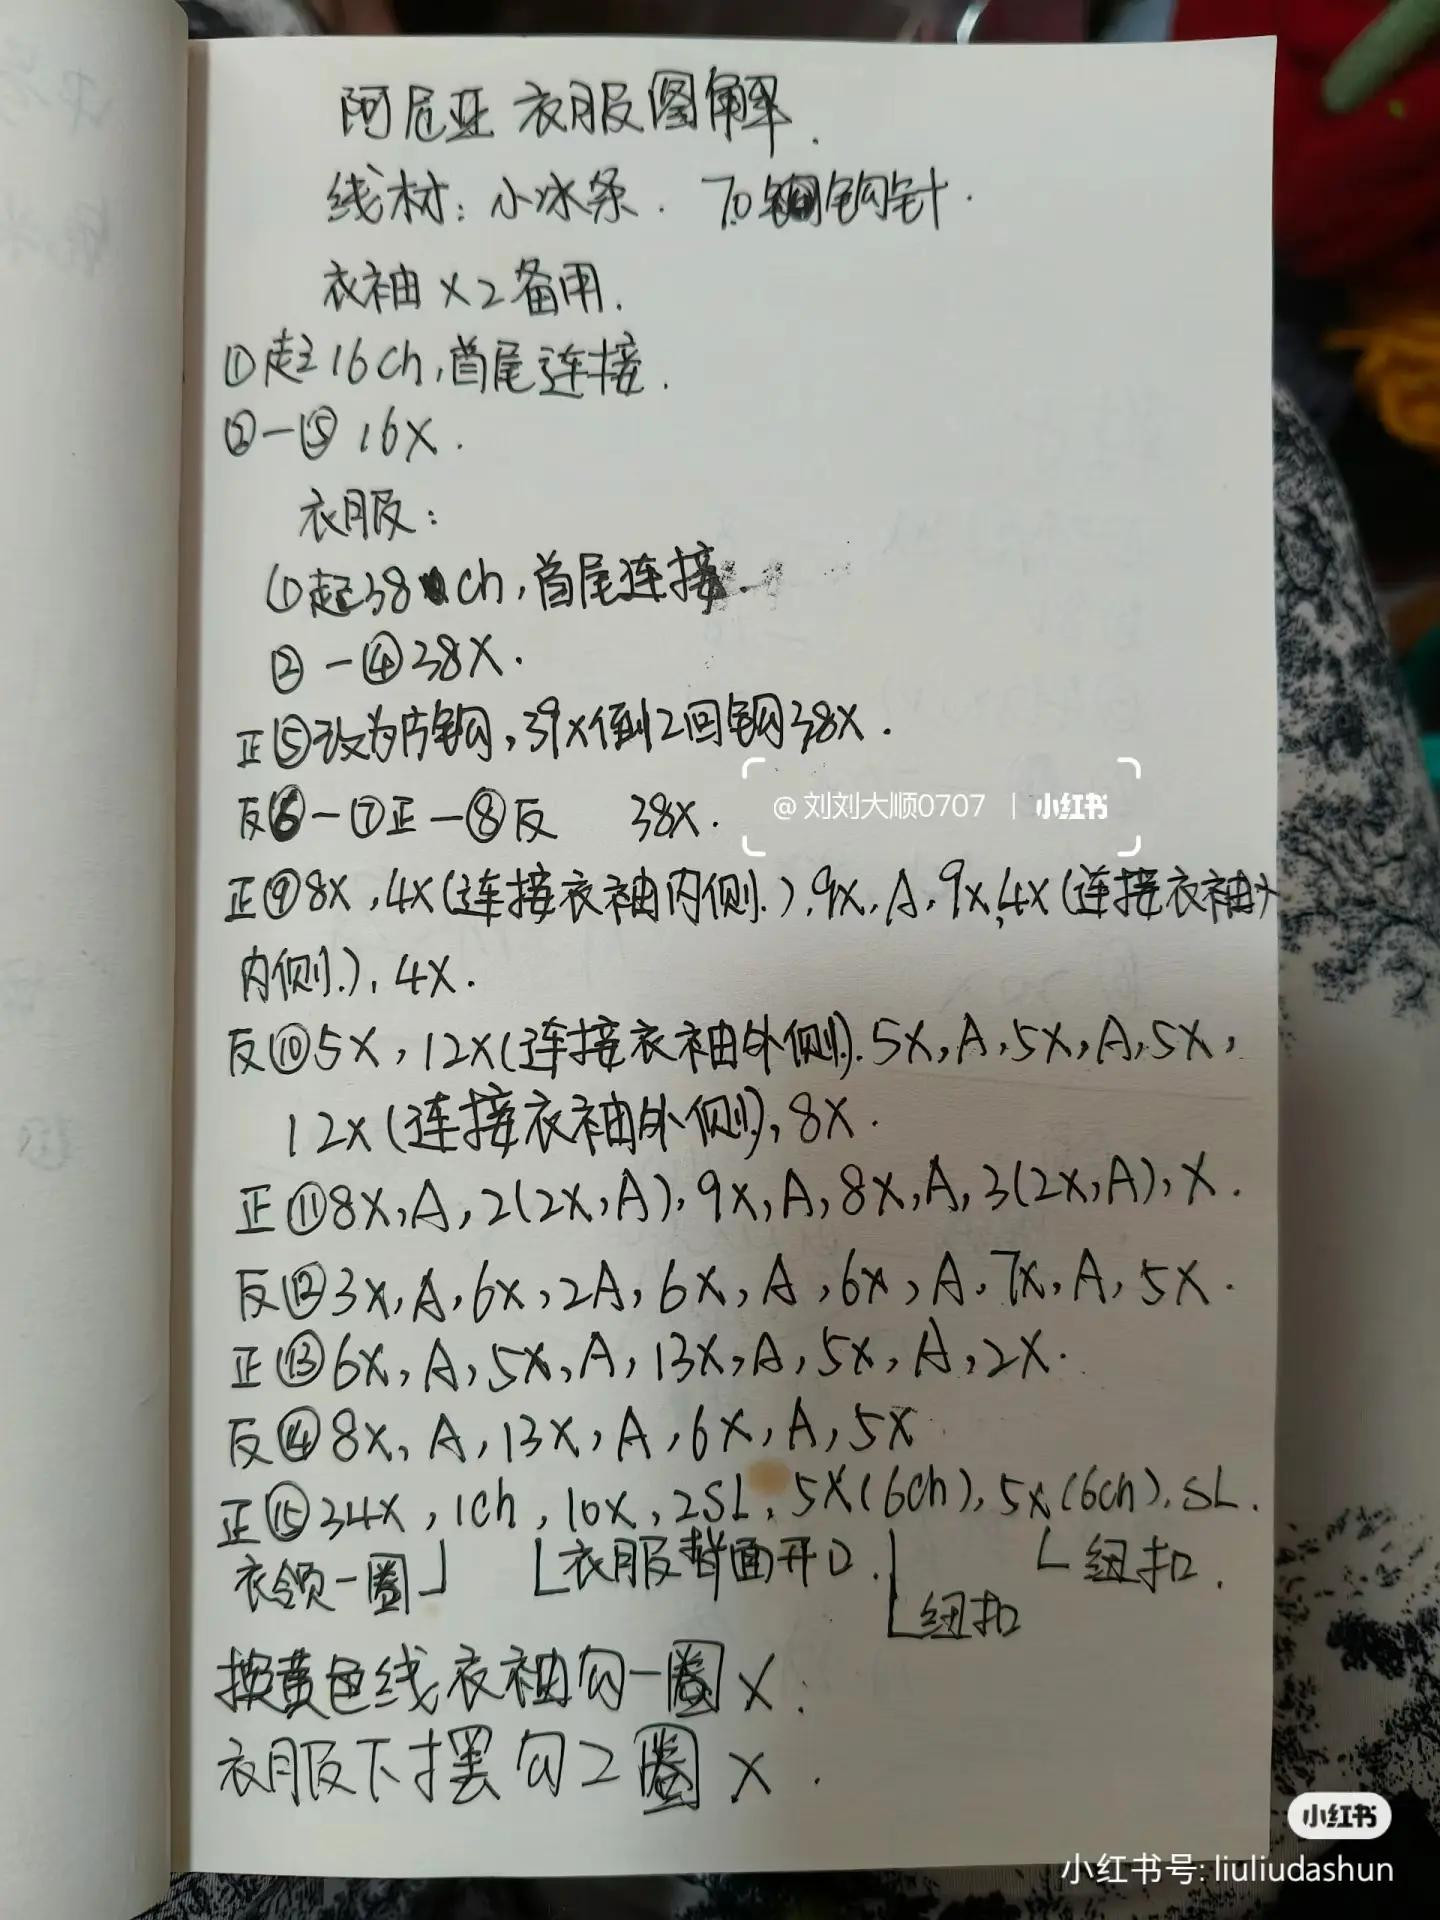 阿尼亚 衣服图解.
线材: 小冰条. 7.0 钩针.
衣袖 X2备用.
①起16ch,首尾连接.
②—⑤ 16X.
衣服:
①起38 ch,首尾连接.
②—④38X.
正⑤改为片钩,39X倒2回钩38X.
反⑥—⑦正—⑧反 38X.
@刘刘大顺0707 | 小红书
正⑨8X,4X(连接衣袖内侧.),9X,A,9X,4X(连接衣袖
内侧.),4X.
反⑩5X,12X(连接衣袖外侧).5X,A,5X,A,5X,
12X(连接衣袖外侧),8X.
正⑪8X,A,2(2X,A),9X,A,8X,A,3(2X,A),X.
反⑫3X,A,6X,2A,6X,A,6X,A,7X,A,5X.
正⑬6X,A,5X,A,13X,A,5X,A,2X.
反⑭8X,A,13X,A,6X,A,5X
正⑮34X,1ch,10X,2SL,5X(6ch),5X(6ch),SL.
衣领一圈 衣服背面开口. 纽扣.
纽扣
换黄色线衣袖勾一圈X.
衣服下摆勾2圈X.
小红书
小红书号: liuliudashun